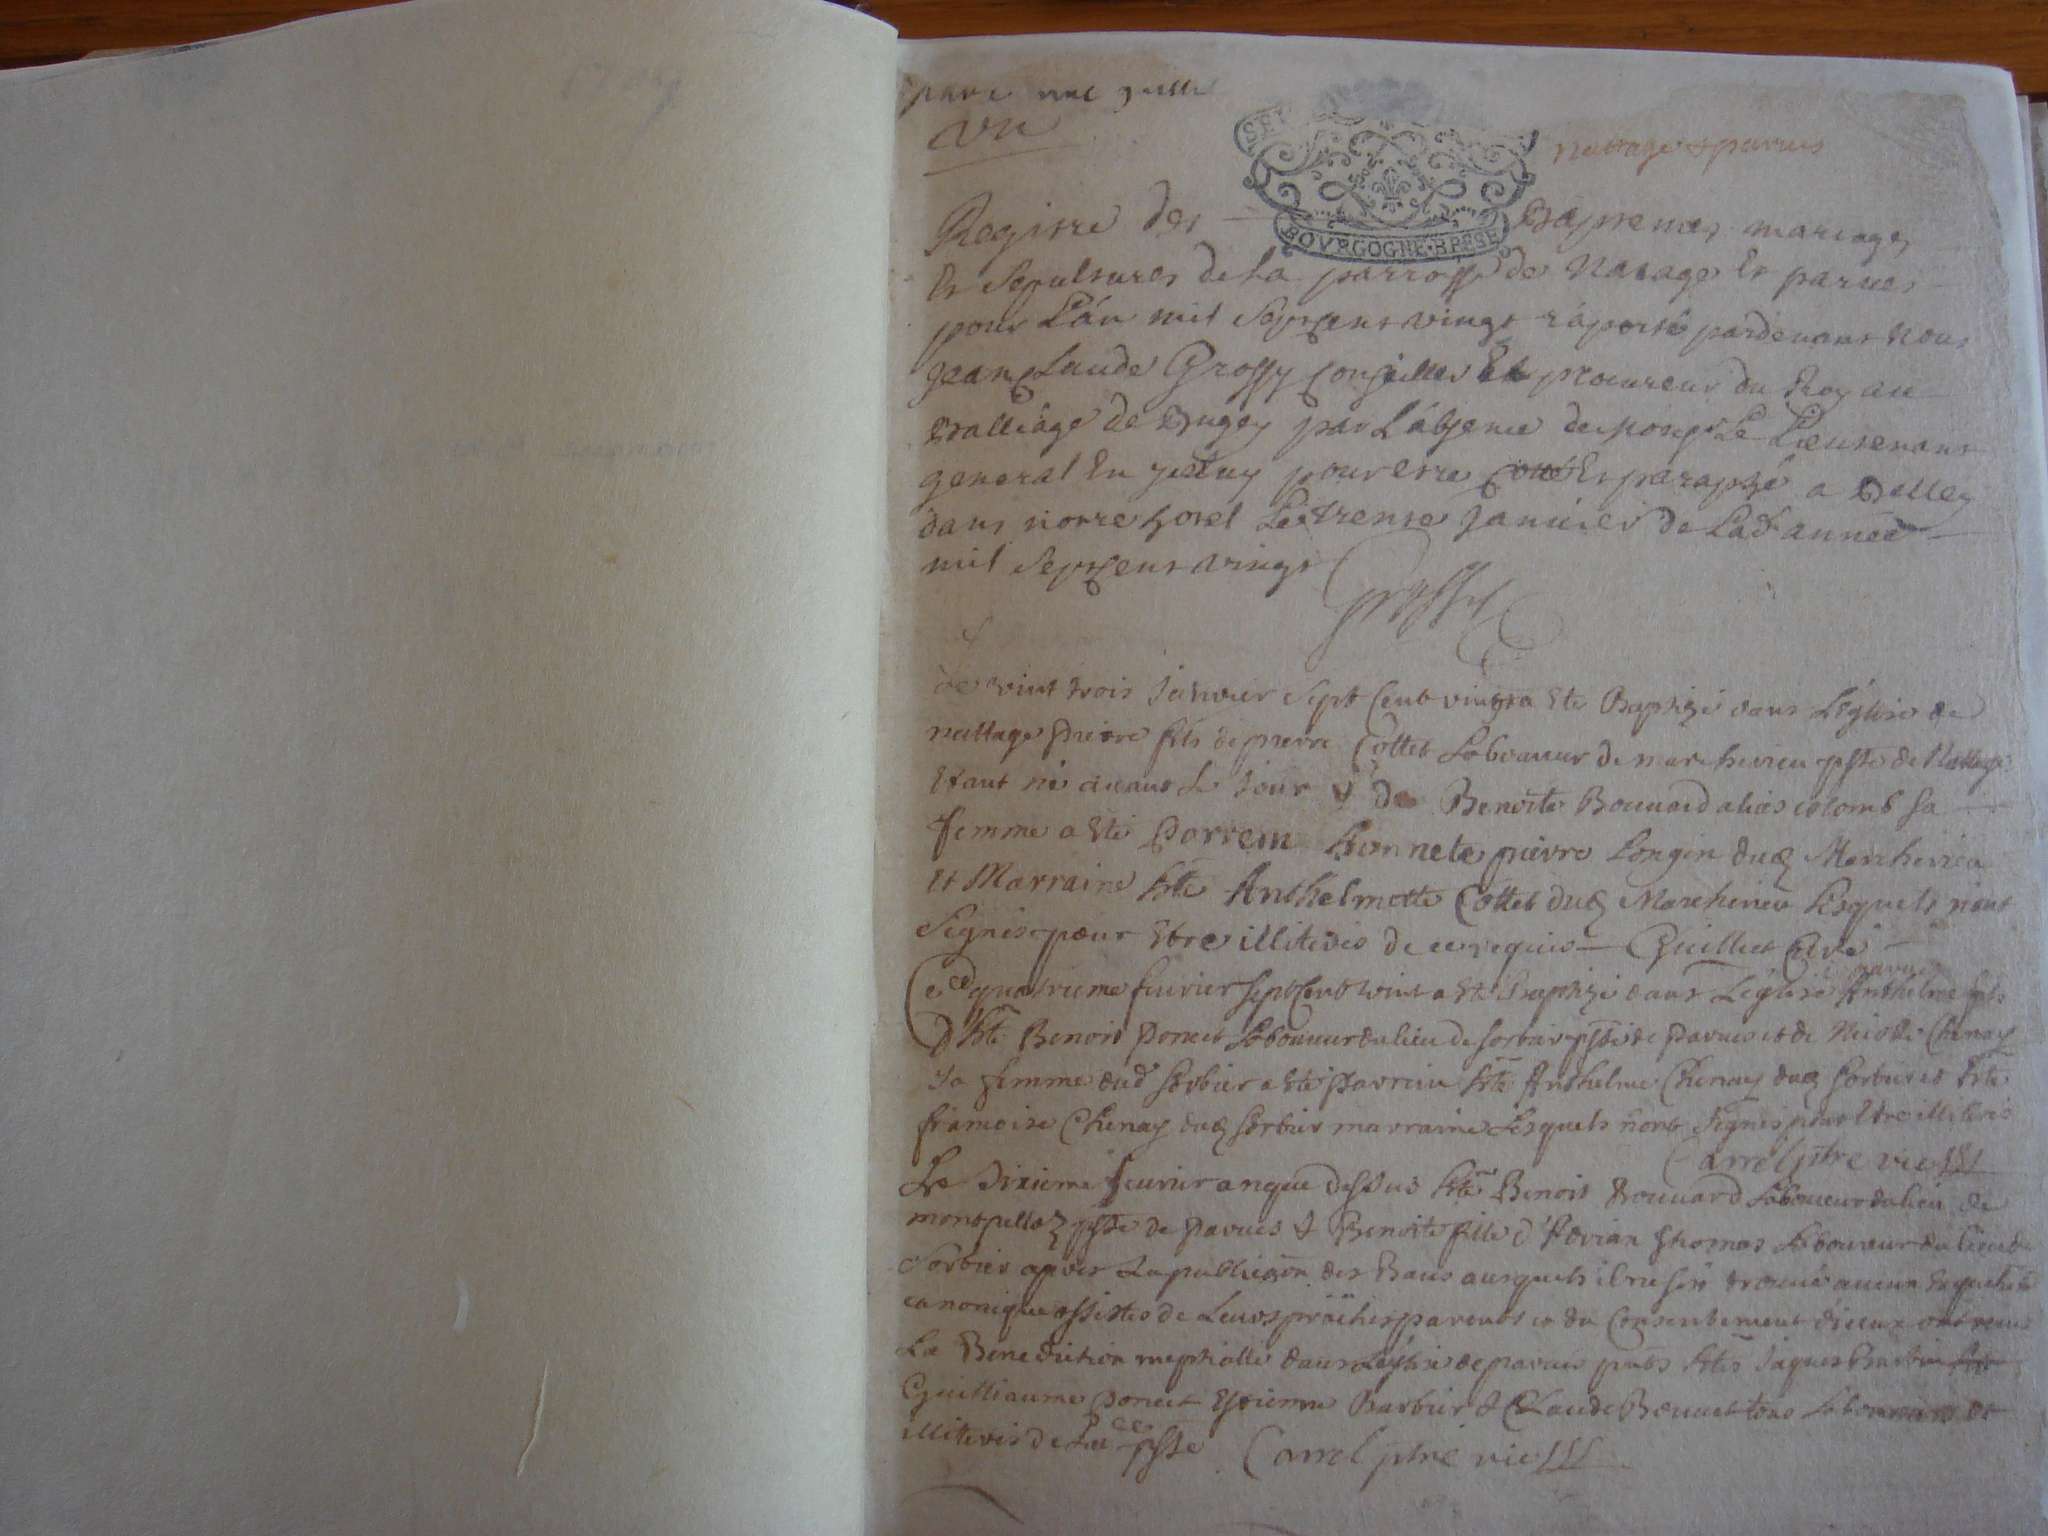 vu
nattage & parves
BOVRGOGNE·BRESSE
Registre des Baptemes mariages
Et Sepultures de La parroisse de Natage Et parves
pour L'an mil Septcent vingt raporté pardevant Nous
Jean Claude Grossy Conseiller Et procureur du Roy au
Balliage de Bugey par L'absence de Monsr Le Lieutenant
general En yceluy pour estre Cotté Et paraphé a Belley
dans notre hotel Le trente Janvier de Lad année
mil Septcent vingt
Grossy
Le vint trois Janvier Sept Cent vingt a Eté Baptizé dans L'église de
nattage pierre fils de pierre Cottet Laboureur de marchevieu psse de Nattage
Etant né avant Le Jour & de Benoite Bouvard alias colomb Sa
femme a Eté Parrein honnete pierre Longin dud Marchevieu
Et Marraine hte Anthelmette Cottet dud Marchevieu Lesquels n'ont
Signés pour Etre illiterés de ce requis Guillet Curé
Ce quatrieme fevrier Sept Cent vint a Eté Baptizé dans L'église de parves Anthelme fils
d'hte Benoit Poncet Laboureur du lieu de Sorbier psse de Parves et de Nicode Chenay
Sa femme dud Sorbier a Eté Parrein hte Anthelme Chenay dud Sorbier et hte
francoise Chenay dud Sorbier marraine Lesquels n'ont Signés pour Etre illiterés
Carrel ptre vic
Le dixieme fevrier an que dessus hte Benoit Bouvard Laboureur du lieu de
montpellaz psse de Parves & Benoite fille d'Adrian Thomas Laboureur du lieu de
Sorbier apres La publication des Bans ausquels il ne s'est trouvé aucun Empechemt
canonique assistés de Leurs proches parents et du Consentement d'iceux ont receu
La Benediction nuptialle dans L'église de parves pnts htes Jaques Barbier
Guilliaume Poncet Etienne Barbier & Claude Bouvet tous Laboureurs et
illiterés de Lad psse Carrel ptre vic